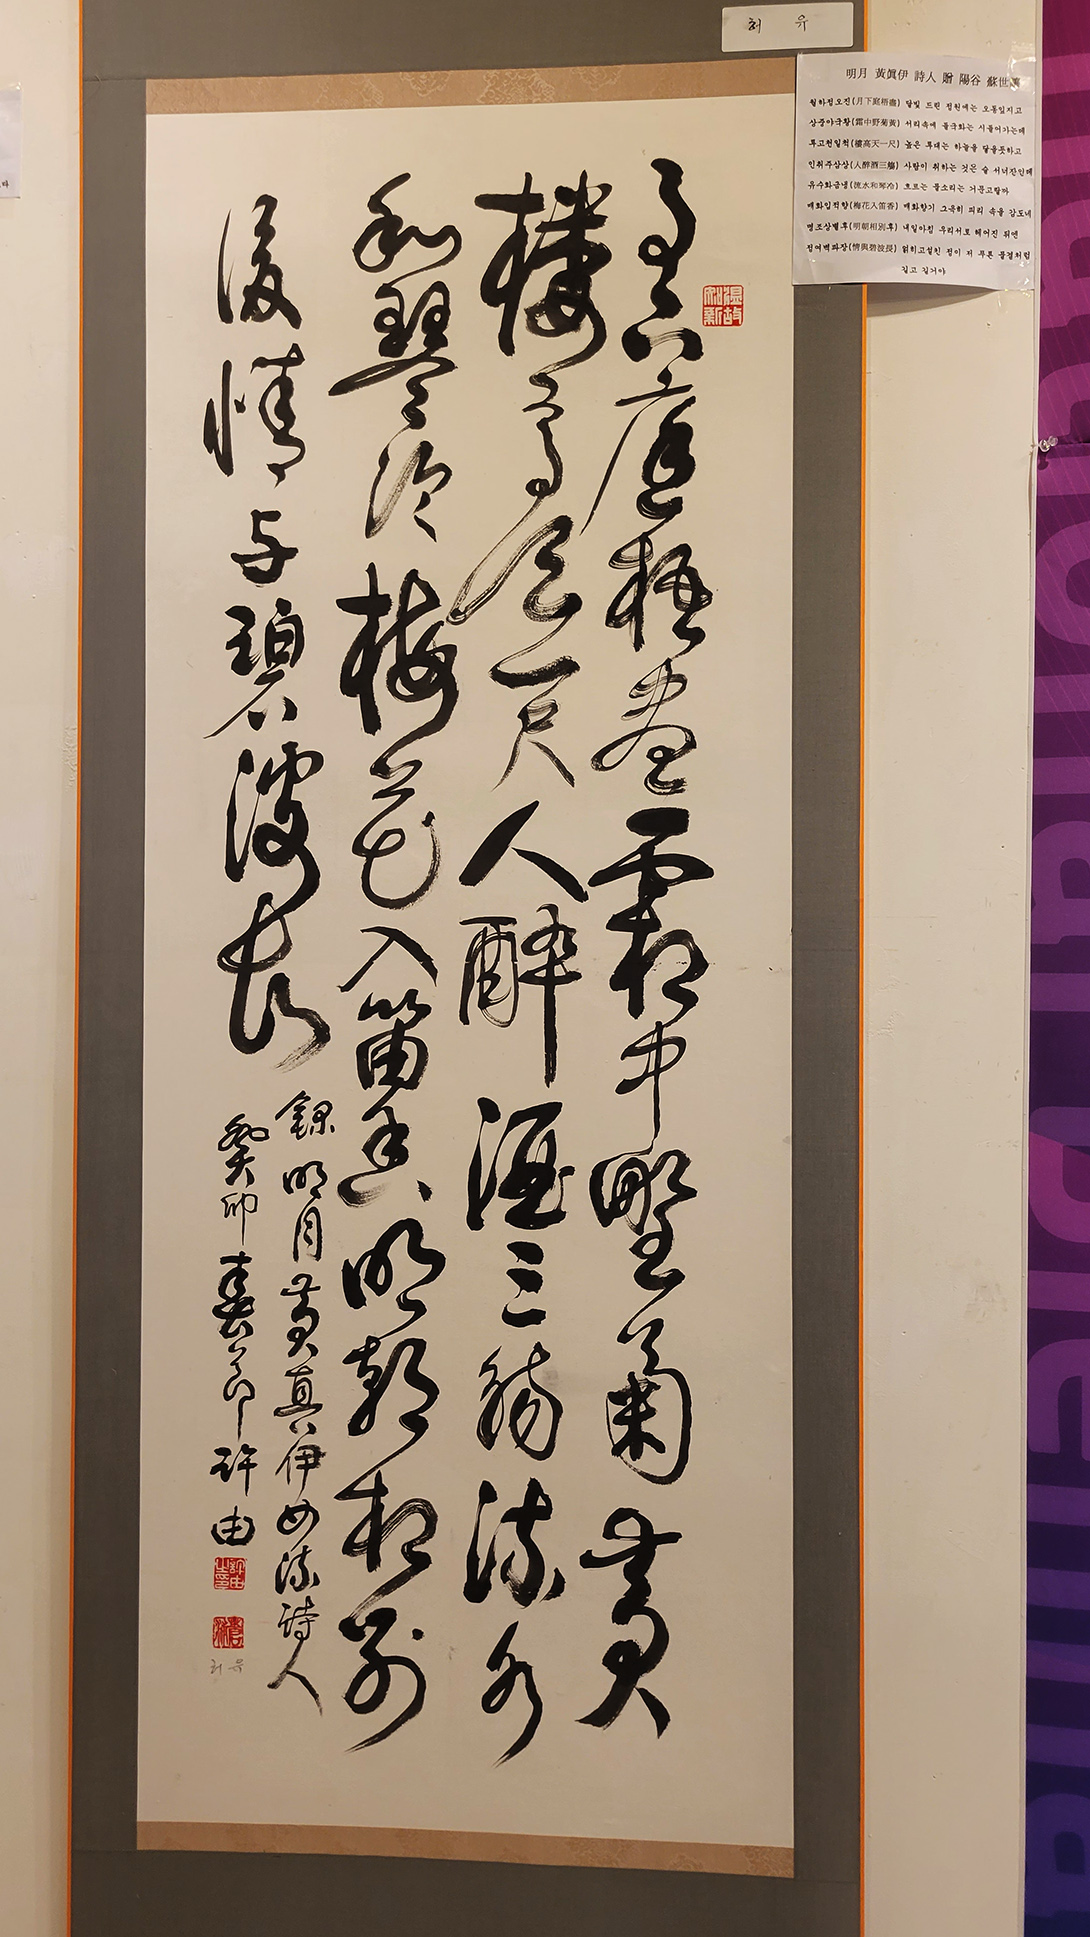 月下庭梧盡霜中野菊黃
樓高天一尺人醉酒三觴流水
和琴冷梅花入笛香明朝相別
後情与碧波長
錄明月黃真伊女流詩人
癸卯春節許由
허유
허 유
明月 黃眞伊 詩人 贈 陽谷 蘇世讓
월하정오진(月下庭梧盡) 달빛 드린 정원에는 오동잎지고
상중야국황(霜中野菊黃) 서리속에 들국화는 시들어가는데
루고천일척(樓高天一尺) 높은 루대는 하늘을 닿을듯하고
인취주상상(人醉酒三觴) 사람이 취하는 것은 술 서너잔인데
유수화금냉(流水和琴冷) 흐르는 물소리는 거문고랄까
매화입적향(梅花入笛香) 매화향기 그윽히 피리 속을 감도네
명조상별후(明朝相別後) 내일아침 우리서로 헤어진 뒤엔
정여벽파장(情與碧波長) 얽히고설친 정이 저 푸른 물결처럼
길고 길거야